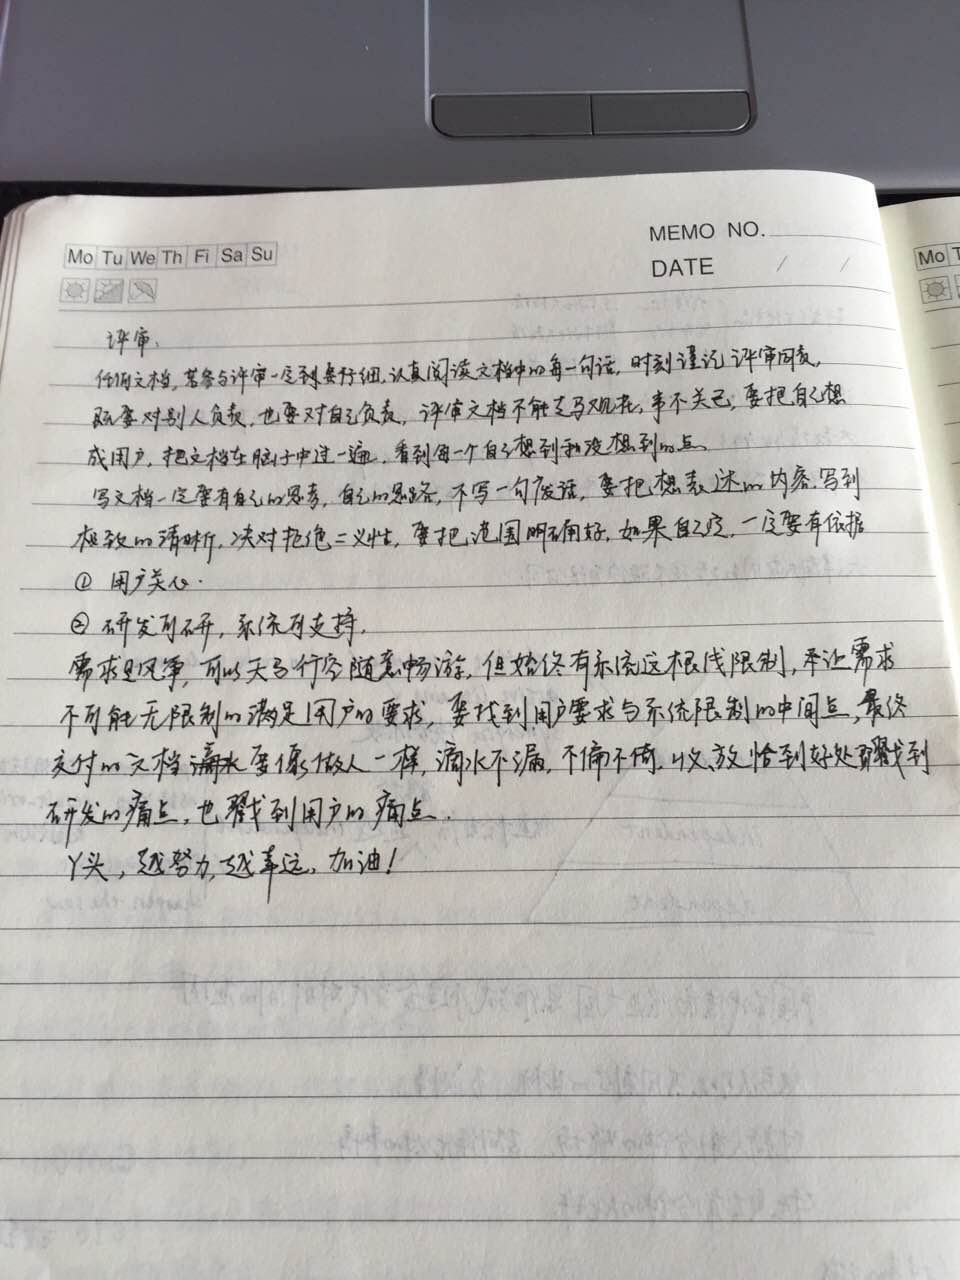 Mo Tu We Th Fi Sa Su
MEMO NO.
DATE / /
Mo T
评审、
任何文档,若参与评审一定到要仔细,认真阅读文档中的每一句话,时刻谨记评审同责,
既要对别人负责,也要对自己负责,评审文档不能走马观花,事不关己,要把自己想
成用户,把文档在脑子中过一遍,看到每一个自己想到和没想到的点
写文档一定要有自己的思考,自己的思路,不写一句废话,要把想表述的内容写到
极致的清晰,决对拒绝二义性,要把范围明确好,如果自定,一定要有依据
① 用户关心.
② 研发可研,系统可支持.
需求是风筝,可以天马行空随意畅游,但始终有系统这根线限制,牵让需求
不可能无限制的满足用户的要求,要找到用户要求与系统限制的中间点,最终
交付的文档滴水要像做人一样,滴水不漏,不偏不倚,收、放恰到好处戳到
研发的痛点,也戳到用户的痛点.
丫头,越努力,越幸运,加油!